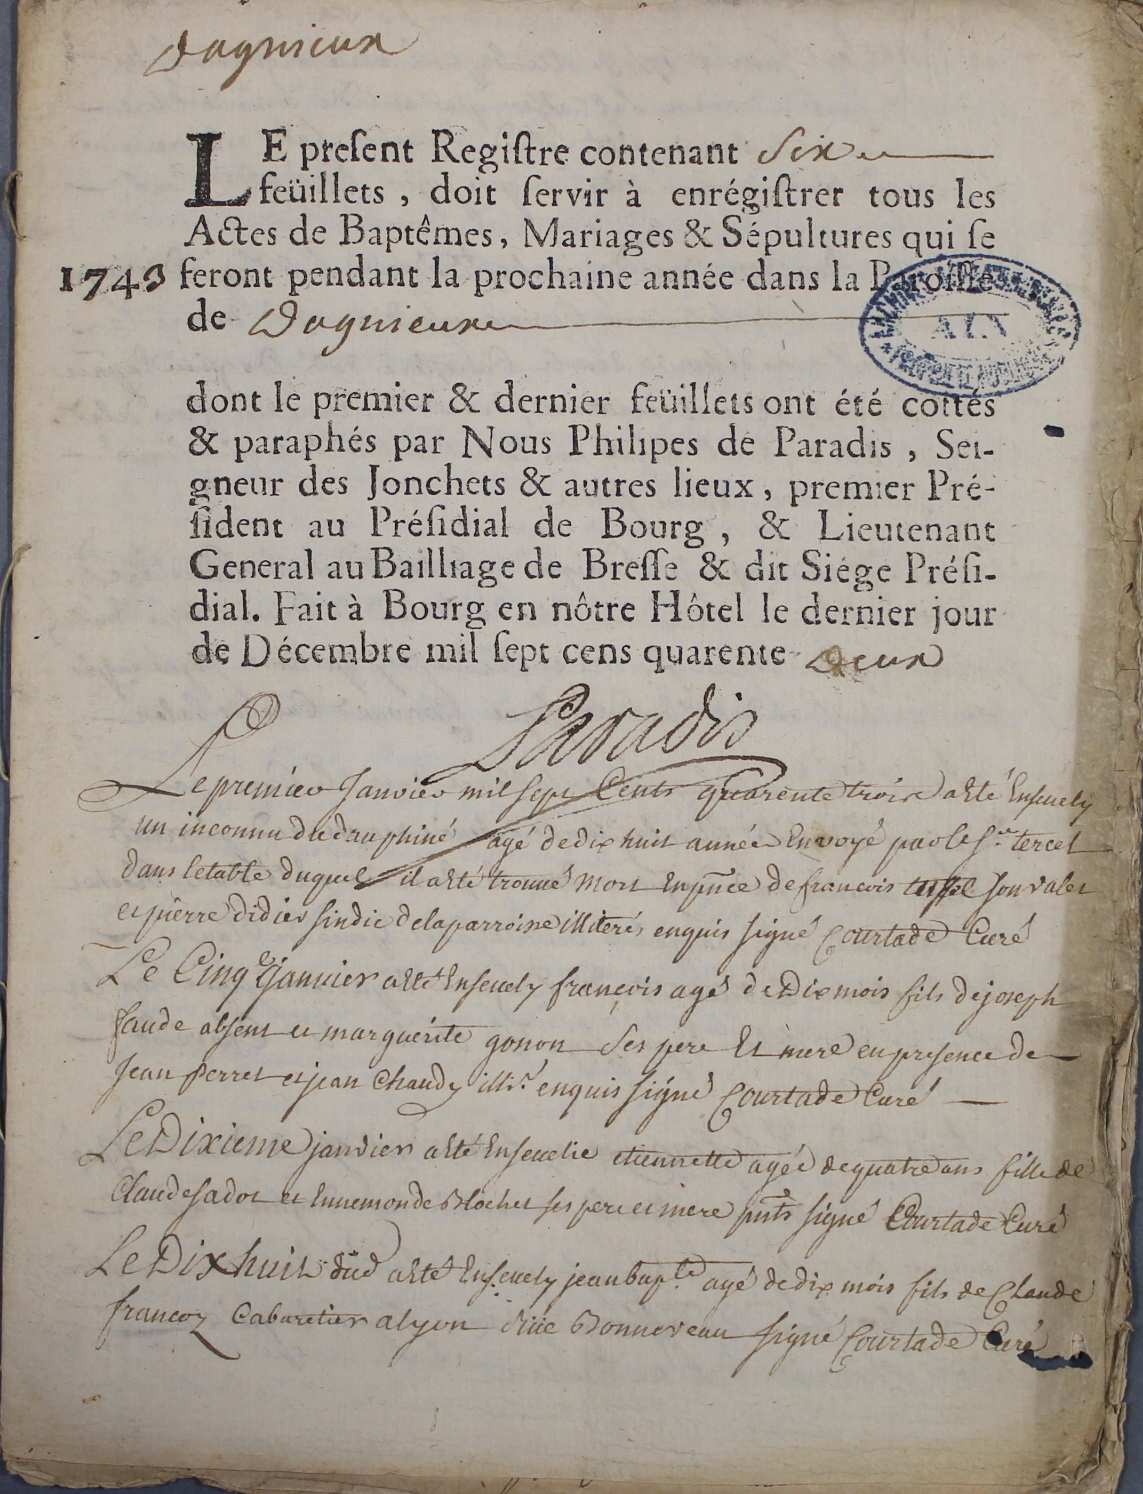 Dagnieux
LE preſent Regiſtre contenant Six
feüillets, doit ſervir à enrégiſtrer tous les
Actes de Baptêmes, Mariages & Sépultures qui ſe
1743 feront pendant la prochaine année dans la Paroiſſe
de Dagnieux
AIN
dont le premier & dernier feüillets ont été cottés
& paraphés par Nous Philipes de Paradis, Sei-
gneur des Jonchets & autres lieux, premier Pré-
ſident au Préſidial de Bourg, & Lieutenant
General au Bailliage de Breſſe & dit Siége Préſi-
dial. Fait à Bourg en nôtre Hôtel le dernier jour
de Décembre mil ſept cens quarente deux
Paradis
Le premier Janvier mil sept Cents quarente trois a esté Ensevely
un inconnu du dauphiné agé de dix huit année Envoyé par le Sr. tercet
dans letable duquel il a esté trouvé mort En pñce de francois son valet
et pierre didier sindic de la parroisse illiterés enquis signé Courtade Curé
Le Cinqe janvier a esté Ensevely françois agé de Dix mois fils de joseph
faude absent et marguerite gonon Ses pere Et mere en presence de
Jean perret et jean Chaudy illr. enquis signé Courtade Curé
Le Dixieme janvier a esté Ensevelie etiennette agée de quatre ans fille de
Claude sadot et Ennemonde Blochet ses pere et mere pnts signé Courtade Curé
Le Dix huit düd a esté Ensevely jean bapte. agé de dix mois fils de Claude
francoz Cabaretier a lyon rüe Bonneveau signé Courtade Curé